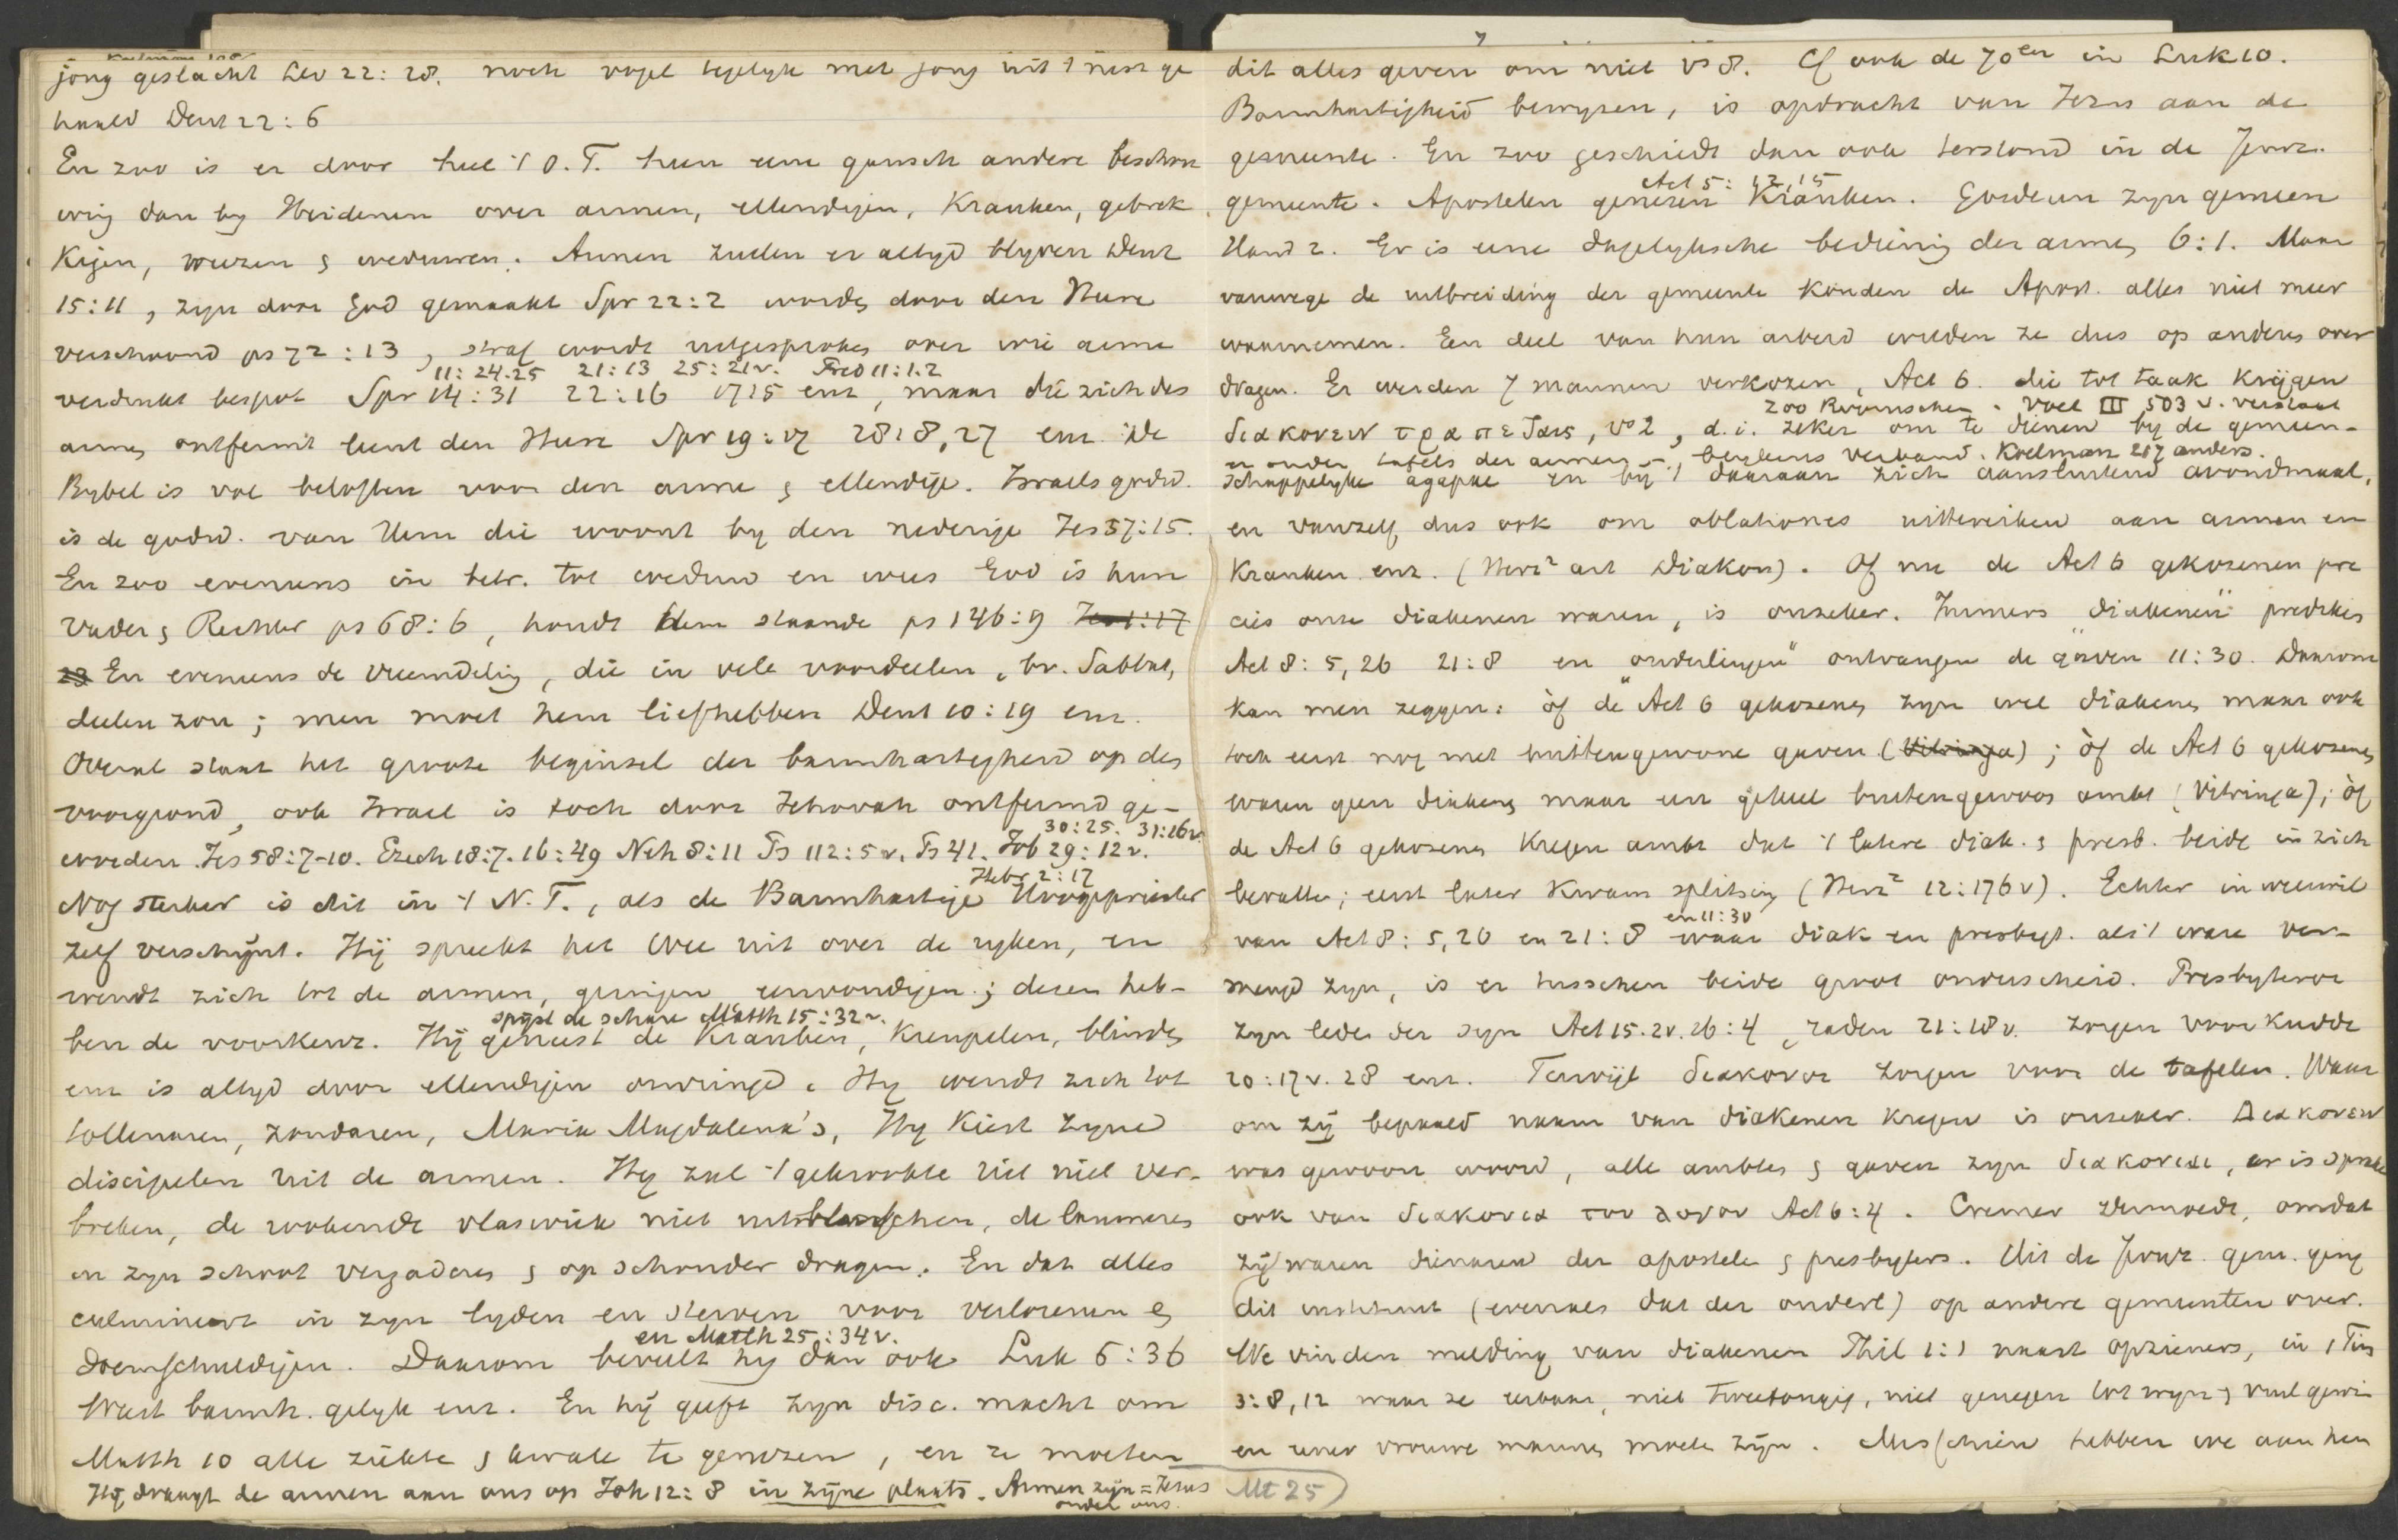 jong geslacht Lev 22:28. noch vogel tegelyk met jong uit 't nest ge
haald Deut 22:6
En zoo is er door heel 't O.T. heen eene gansch andere beschou
wing dan by Heidenen over armen, ellendigen, Kranken, gebrek
kigen, weezen & weduwen. Armen zullen er altyd blyven Deut
15:11, zyn door God gemaakt Spr 22:2 worden door den Heere
verschoond ps 72:13, straf wordt uitgesproken over wie arme
11:24.25 21:13 25:21v. Pred 11:1.2
verdrukt bespot Spr 14:31 22:16 1715 enz, maar die zich des
armen ontfermt leent den Heere Spr 19:17 28:8,27 enz. De
Bybel is vol beloften voor den arme & ellendige. Israels godsd.
is de godsd. van Hem die woont by den nederige Jes 57:15.
En zoo eveneens in betr. tot weduw en wees God is hun
Vader & Rechter ps 68:6, houdt hem staande ps 146:9 Jes 1:17
23 En eveneens de vreemdeling, die in vele voordeelen, bv. Sabbat,
deelen zou; men moet hem liefhebben Deut 10:19 enz.
Overal staat het groote beginsel der barmhartigheid op den
voorgrond, ook Israel is toch door Jehovah ontfermd ge-
30:25. 31:16v.
worden Jes 58:7-10. Ezech 18:7. 16:49 Neh 8:11 Ps 112:5v. Ps 41. Job 29:12v.
Hebr 2:17
Nog sterker is dit in 't N.T., als de Barmhartige Hoogepriester
zelf verschijnt. Hij spreekt het Wee uit over de ryken, en
wendt zich tot de armen, geringen eenvoudigen; dezen heb-
spijst de schare Matth 15:32v.
ben de voorkeur. Hij geneest de Kranken, Kreupelen, blinden
enz is altyd door ellendigen omringd. Hy wendt zich tot
tollenaren, zondaren, Maria Magdalena's, Hy Kiest zyne
discipelen uit de armen. Hy zal 't gekrookte riet niet ver-
breken, de rookende vlaswiek niet uitblusschen, de lammeren
in zyn schoot vergaderen & op schouder dragen. En dat alles
culmineert in zyn lyden en sterven voor verlorenen &
en Matth 25:34v.
doemschuldigen. Daarom beveelt hy dan ook Luk 6:36
Weest barmh. gelyk enz. En hij geeft zyn disc. macht om
Matth 10 alle ziekte & kwale te genezen, en ze moeten
Hij draagt de armen aan ons op Joh 12:8 in zijne plaats. Armen zijn = Jezus
onder ons.
dit alles geven om niet vs 8. Cf ook de 70en in Luk 10.
Barmhartigheid bewyzen, is opdracht van Jezus aan de
gemeente. En zoo geschiedt dan ook terstond in de Jeruz.
Act 5:12,15
gemeente. Apostelen genezen Kranken. Goederen zyn gemeen
Hand 2. Er is eene dagelyksche bediening der armen 6:1. Maar
vanwege de uitbreiding der gemeente Konden de Apost. alles niet meer
waarnemen. Een deel van hun arbeid wilden ze dus op anderen over
dragen. Er werden 7 mannen verkozen, Act 6. die tot taak Krijgen
zoo Roomschen. Voet III 503 v. verstaat
διακονειν τραπεζαις, vs 2, d.i. zeker om te dienen by de gemeen-
er onder tafels der armen, blykens verband. Koelman 217 anders.
schappelyke agapae en by 't daaraan zich aansluitend avondmaal,
en vanzelf dus ook om oblationes uittereiken aan armen en
Kranken enz. (Herz² art Diakon). Of nu de Act 6 gekozenen pre
cies onze diakenen waren, is onzeker. Immers "diakenen" prediken
Act 8:5,26 21:8 en "ouderlingen" ontvangen de gaven 11:30. Daarom
kan men zeggen: òf de Act 6 gekozenen zyn wel diakenen maar ook
toch eerst nog met buitengewone gaven (Vitringa); òf de Act 6 gekozenen
waren geen diakenen maar een geheel buitengewoon ambt (Vitringa); òf
de Act 6 gekozenen Kregen ambt dat 't latere diak. & presb. beide in zich
bevatte; eerst later Kwam splitsing (Herz² 12:176v). Echter in weerwil
en 11:30
van Act 8:5,20 en 21:8 waar diak en presbyt. als 't ware ver-
mengd zyn, is er tusschen beide groot onderscheid. Presbyteroi
zyn leden der syn Act 15.2v. 16:4, raden 21:18v. zorgen voor Kudde
20:17v. 28 enz. Terwijl διακονοι zorgen voor de tafelen. Waar
om zij bepaald naam van diakenen kregen is onzeker. Διακονειν
was gewoon woord, alle ambten & gaven zyn διακονιαι, er is sprake
ook van διακονια του λογου Act 6:4. Cremer vermoedt, omdat
zij waren dienaren der apostelen & presbyters. Uit de Jeruz. gem. ging
dit instituut (evenals dat der ouderl) op andere gemeenten over.
We vinden melding van diakenen Phil 1:1 naast opzieners, in 1 Tim
3:8,12 waar ze eerbaar, niet tweetongig, niet genegen tot wyn & vuil gewin
en eener vrouwe mannen moeten zijn. Misschien hebben we aan hen
Mt 25